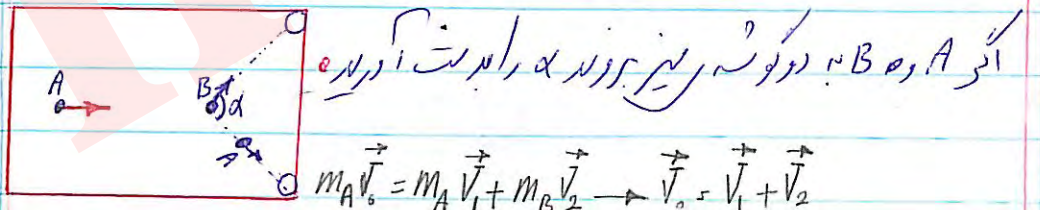 اگر A و B به دو گوشه میز بروند α را بدست آورید.
A
B
α
A
m_A V⃗₀ = m_A V⃗₁ + m_B V⃗₂ → V⃗₀ = V⃗₁ + V⃗₂